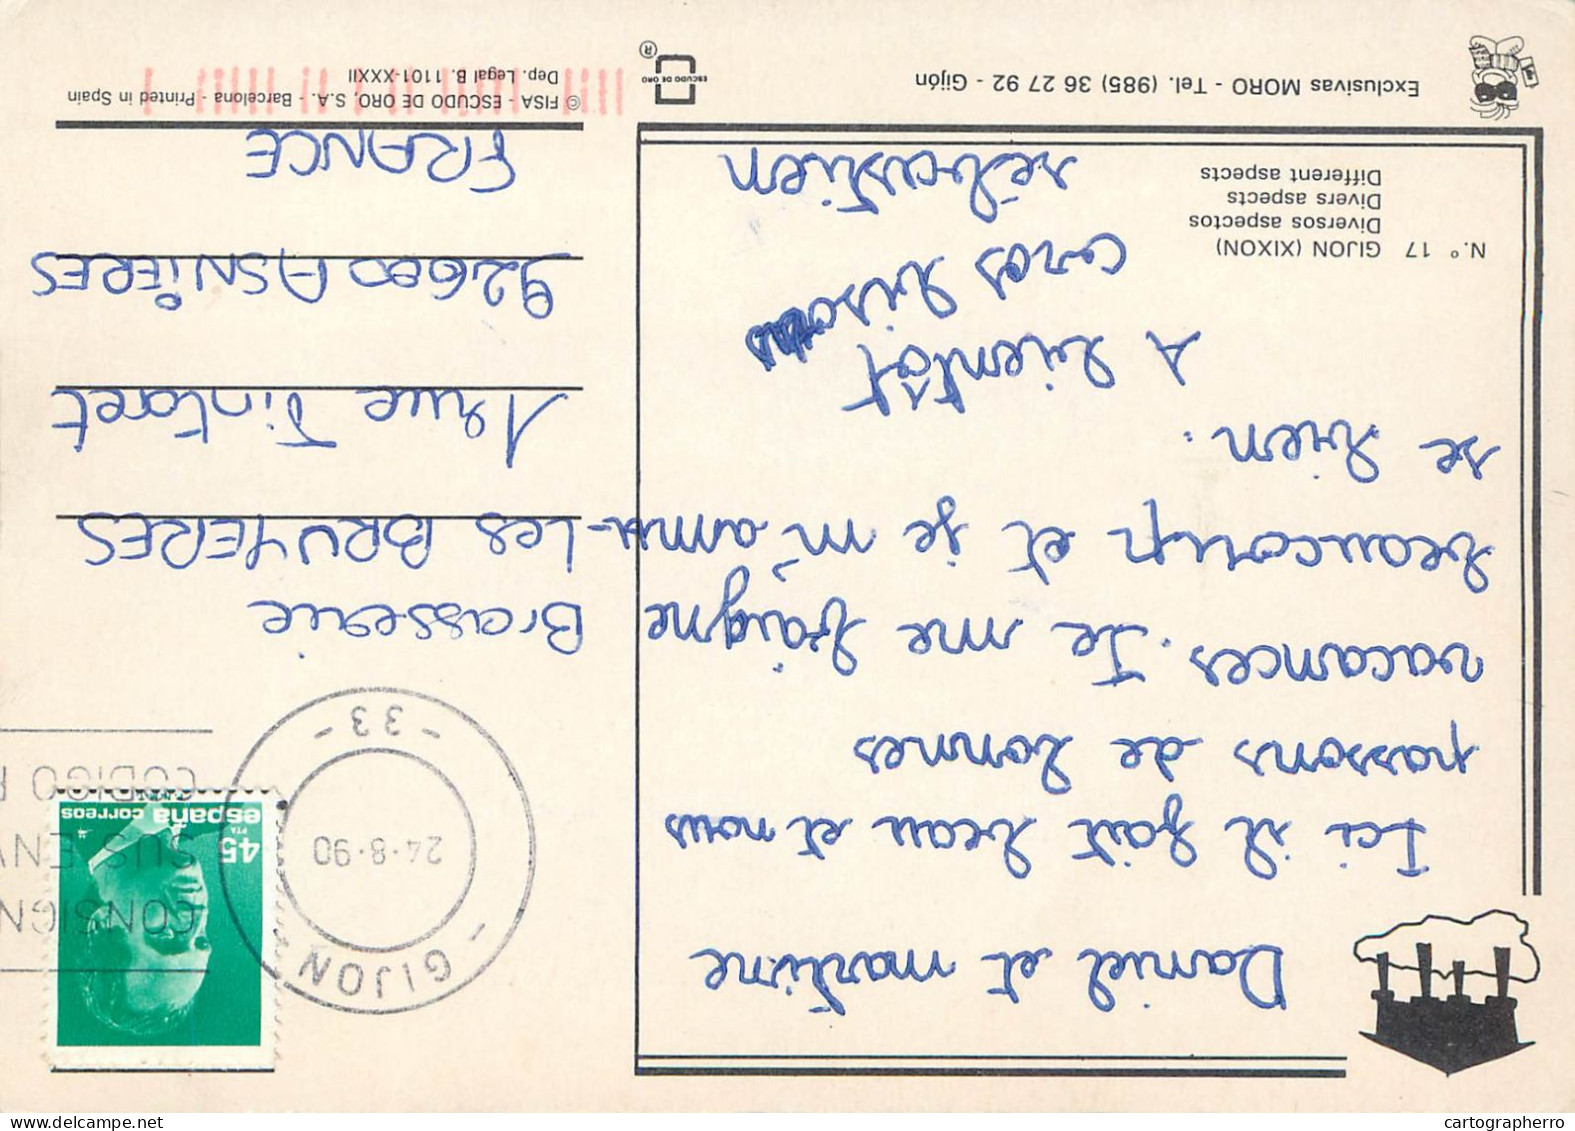 Daniel et martine
Ici il fait beau et nous
passons de bonnes
vacances. Je me baigne
beaucoup et je m'amu-
se bien.
A bientôt
gros bisous
sébastien
N.º 17 GIJON (XIXON)
Diversos aspectos
Divers aspects
Different aspects
Exclusivas MORO - Tel. (985) 36 27 92 - Gijón
ESCUDO DE ORO
®
45
PTA
españa correos
- GIJON -
24-8-90
- 33 -
CONSIGN
SUS ENV
CODIGO P
Brasserie
Les BRUYERES
1 rue Tintoret
92600 ASNIERES
FRANCE
© FISA - ESCUDO DE ORO, S.A. - Barcelona - Printed in Spain
Dep. Legal B. 1101-XXXII
cartographerro